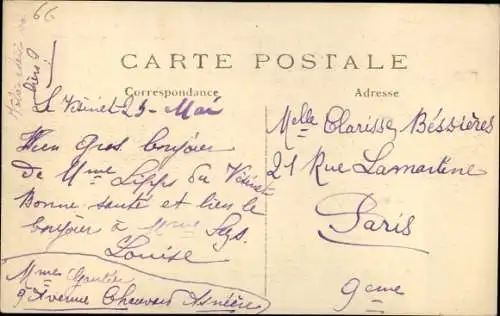 66
CARTE POSTALE
Correspondance
Adresse
Le Vésinet 25 Mai
Bien Gros bonjour
de Mme Lipps du Vésinet
Bonne santé et bien le
bonjour à Mme
Louise
Mme Gautier
9 Avenue Chauvart Asnières
Melle Clarisse Bessières
21 Rue Lamartine
Paris
9eme